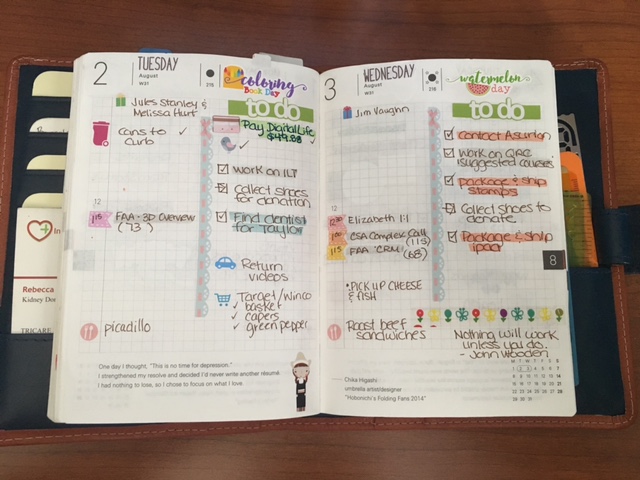 2
TUESDAY
August
W31
215
coloring
Book Day
to do
Jules Stanley &
Melissa Hurt
cans to
curb
Pay DigitalLife
$49.88
work on ILT
Collect shoes
for donation
12
1:15
FAA - 3D Overview
(73)
Find dentist
for Taylor
Return
videos
Target/Winco
basket
capers
green pepper
picadillo
One day I thought, "This is no time for depression."
I strengthened my resolve and decided I'd never write another résumé.
I had nothing to lose, so I chose to focus on what I love.
3
WEDNESDAY
August
W31
216
watermelon
day
to do
Jim Vaughn
Contact Asurion
Work on QRC
suggested courses
package & ship
stamps
Collect shoes to
donate
Package & ship
ipad
12
12:30
Elizabeth 1:1
1:00
CSA Complex Call
(113)
1:15
FAA "CRM"
(68)
8
• PICK UP CHEESE
& FISH
Roast beef
sandwiches
Nothing will work
unless you do.
- John Wooden
Chika Higashi
umbrella artist/designer
"Hobonichi's Folding Fans 2014"
Rebecca
Kidney Dor
TRICARE
In